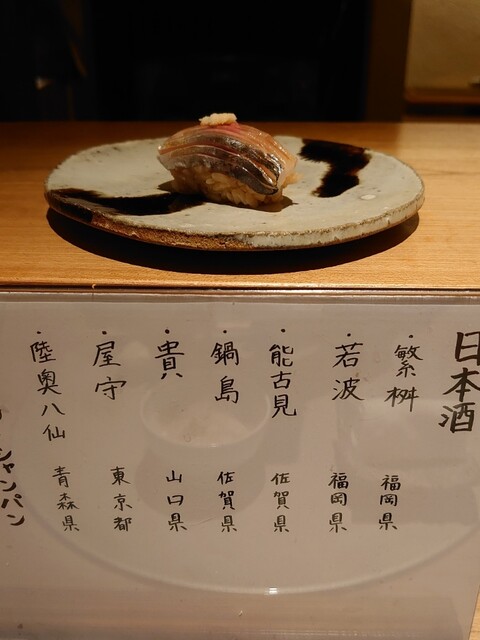 日本酒
・繁桝 福岡県
・若波 福岡県
・能古見 佐賀県
・鍋島 佐賀県
・貴 山口県
・屋守 東京都
・陸奥八仙 青森県
シャンパン